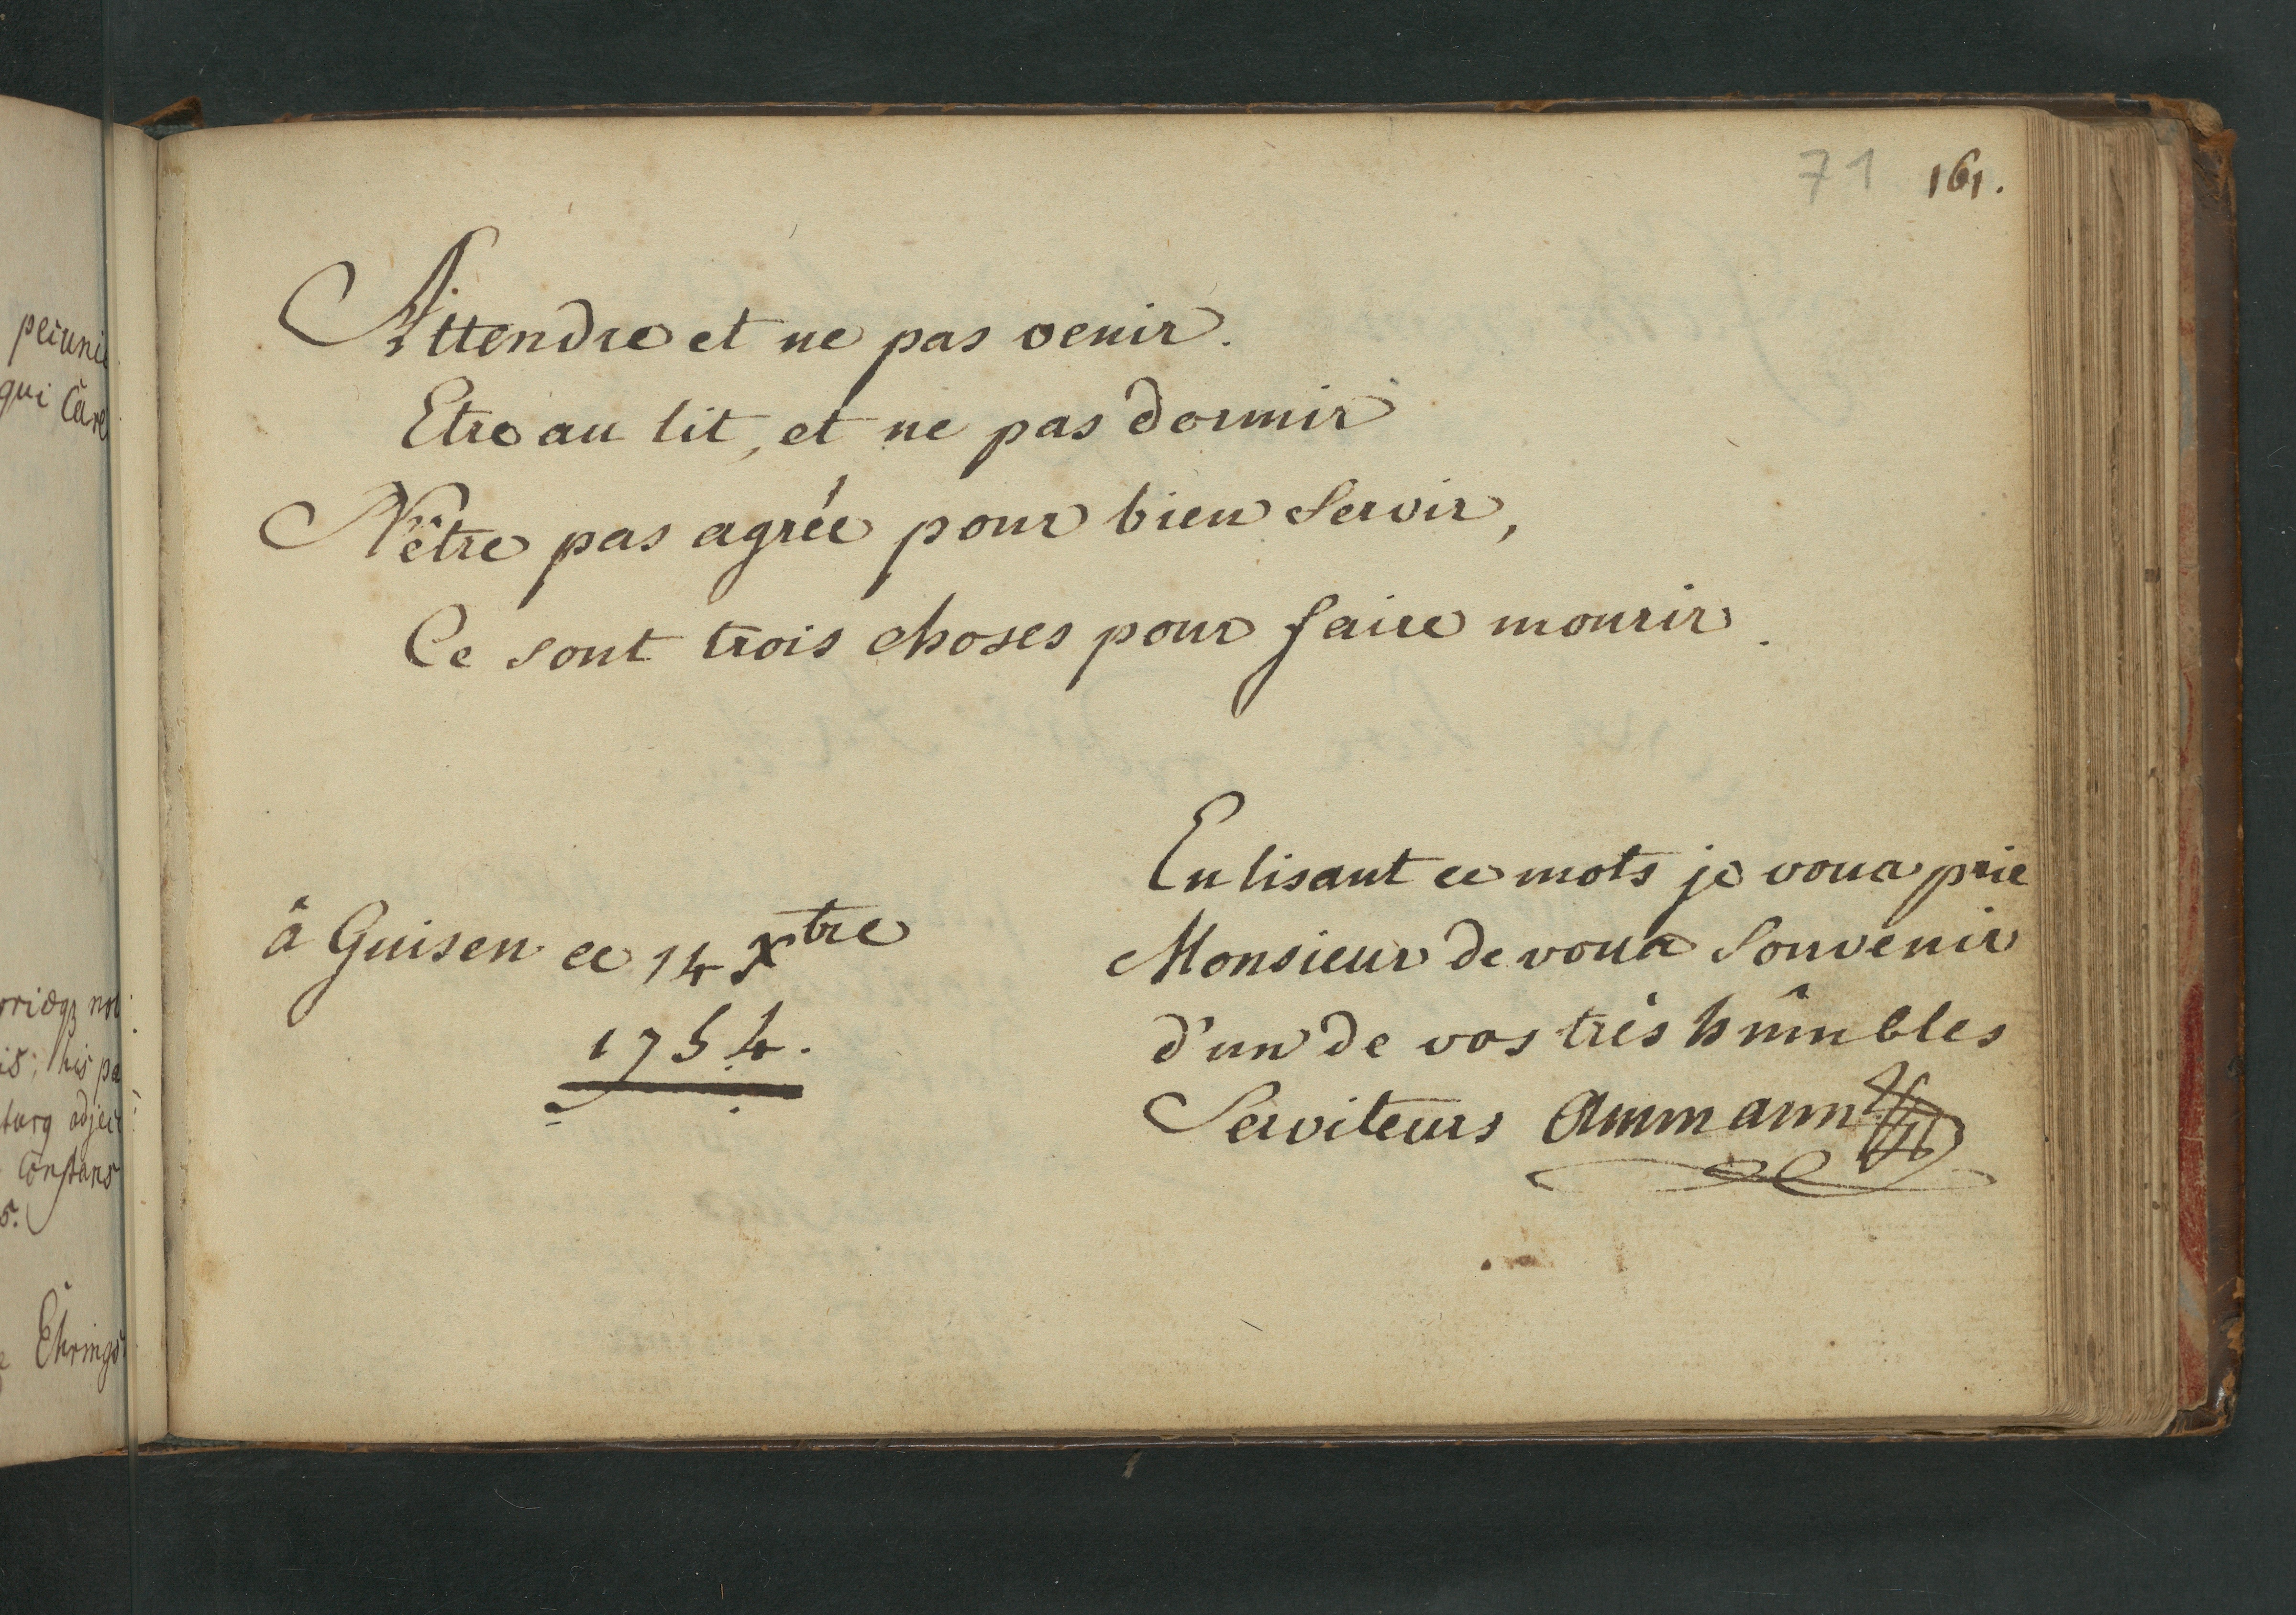 peiuni
qui Care
is; his pa
adjeci
Constans
5.
71 161.
Attendre et ne pas venir.
Etre au lit, et ne pas dormir
N'être pas agrée pour bien Servir,
Ce sont trois choses pour faire mourir.
à Guisen ce 14 Xtre
1754.
En lisant ce mots je vous prie
Monsieur de vous Souvenir
d'un de vos trés humbles
Serviteurs Ammann